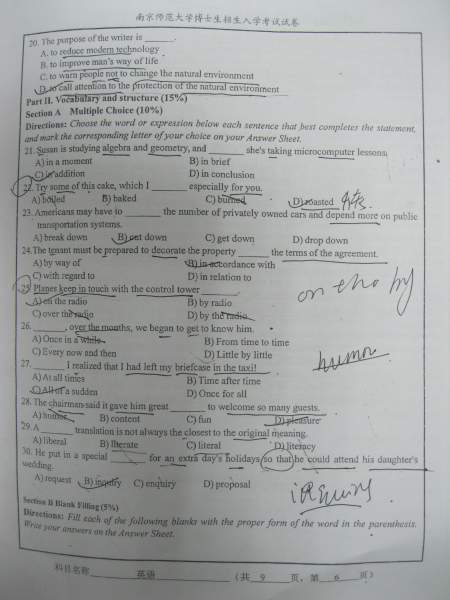 南京师范大学博士生招生入学考试试卷
20. The purpose of the writer is ______.
A. to reduce modern technology
B. to improve man's way of life
C. to warn people not to change the natural environment
D. to call attention to the protection of the natural environment
Part II. Vocabulary and structure (15%)
Section A Multiple Choice (10%)
Directions: Choose the word or expression below each sentence that best completes the statement,
and mark the corresponding letter of your choice on your Answer Sheet.
21. Susan is studying algebra and geometry, and ______ she's taking microcomputer lessons.
A) in a moment B) in brief
C) in addition D) in conclusion
22. Try some of this cake, which I ______ especially for you.
A) boiled B) baked C) burned D) roasted
23. Americans may have to ______ the number of privately owned cars and depend more on public
transportation systems.
A) break down B) cut down C) get down D) drop down
24. The tenant must be prepared to decorate the property ______ the terms of the agreement.
A) by way of B) in accordance with
C) with regard to D) in relation to
25. Planes keep in touch with the control tower ______.
A) on the radio B) by radio
C) over the radio D) by the radio
on the by
26. ______, over the months, we began to get to know him.
A) Once in a while B) From time to time
C) Every now and then D) Little by little
humor
27. ______ I realized that I had left my briefcase in the taxi!
A) At all times B) Time after time
C) All of a sudden D) Once for all
28. The chairman said it gave him great ______ to welcome so many guests.
A) humor B) content C) fun D) pleasure
29. A ______ translation is not always the closest to the original meaning.
A) liberal B) literate C) literal D) literacy
30. He put in a special ______ for an extra day's holidays so that he could attend his daughter's
wedding.
A) request B) inquiry C) enquiry D) proposal
Section B Blank Filling (5%)
Directions: Fill each of the following blanks with the proper form of the word in the parenthesis.
Write your answers on the Answer Sheet.
科目名称 英语 (共 9 页, 第 6 页)